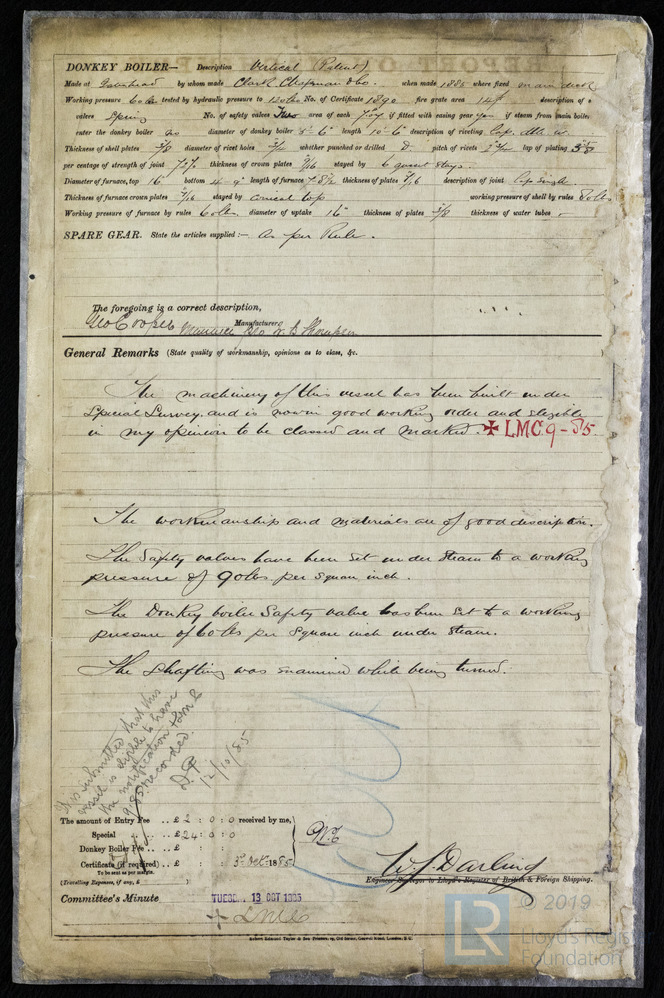 DONKEY BOILER— Description Vertical (Patent)
Made at Gateshead by whom made Clark Chapman & Co. when made 1885 where fixed main deck
Working pressure 60 lbs tested by hydraulic pressure to 120 lbs No. of Certificate 1890 fire grate area 14 description of
valves Spring No. of safety valves Two area of each if fitted with easing gear yes if steam from main boilers
enter the donkey boiler no diameter of donkey boiler 5'-6" length 10'-6" description of riveting Lap
Thickness of shell plates 3/8 diameter of rivet holes whether punched or drilled pitch of rivets lap of plating
per centage of strength of joint 72% thickness of crown plates 7/16 stayed by 6 gusset stays
Diameter of furnace, top bottom 4'-9" length of furnace thickness of plates 7/16 description of joint Lap single
Thickness of furnace crown plates 7/16 stayed by conical top working pressure of shell by rules
Working pressure of furnace by rules 60 lbs. diameter of uptake 16" thickness of plates 3/8 thickness of water tubes
SPARE GEAR. State the articles supplied:— As per Rule.
The foregoing is a correct description,
Geo Cooper Manufacturer W. B. Thompson
General Remarks (State quality of workmanship, opinions as to class, &c.
The machinery of this vessel has been built under
Special Survey. and is now in good working order and eligible
in my opinion to be classed and marked. ✠ LMC 9-85
The workmanship and materials are of good description.
The Safety valves have been set under steam to a working
pressure of 90 lbs per square inch.
The Donkey boiler Safety valve has been set to a working
pressure of 60 lbs per square inch under steam.
The shafting was examined while being turned.
It is submitted that this
vessel is eligible to have
the notification +LMC
9.85 recorded.
12/10/85
The amount of Entry Fee .. £ 2 : 0 : 0 received by me,
Special .. £ 24 : 0 : 0
Donkey Boiler Fee .. £ : :
Certificate (if required) .. £ : : 3d Oct. 1885
To be sent as per margin.
(Travelling Expenses, if any, £ )
W. J. Darling
Engineer Surveyor to Lloyd's Register of British & Foreign Shipping.
Committee's Minute TUESDAY 13 OCT 1885
+ LMC
Robert Edmund Taylor & Son Printers, 19, Old Street, Goswell Road, London, E.C.
© 2019
LR
Lloyd's Register
Foundation